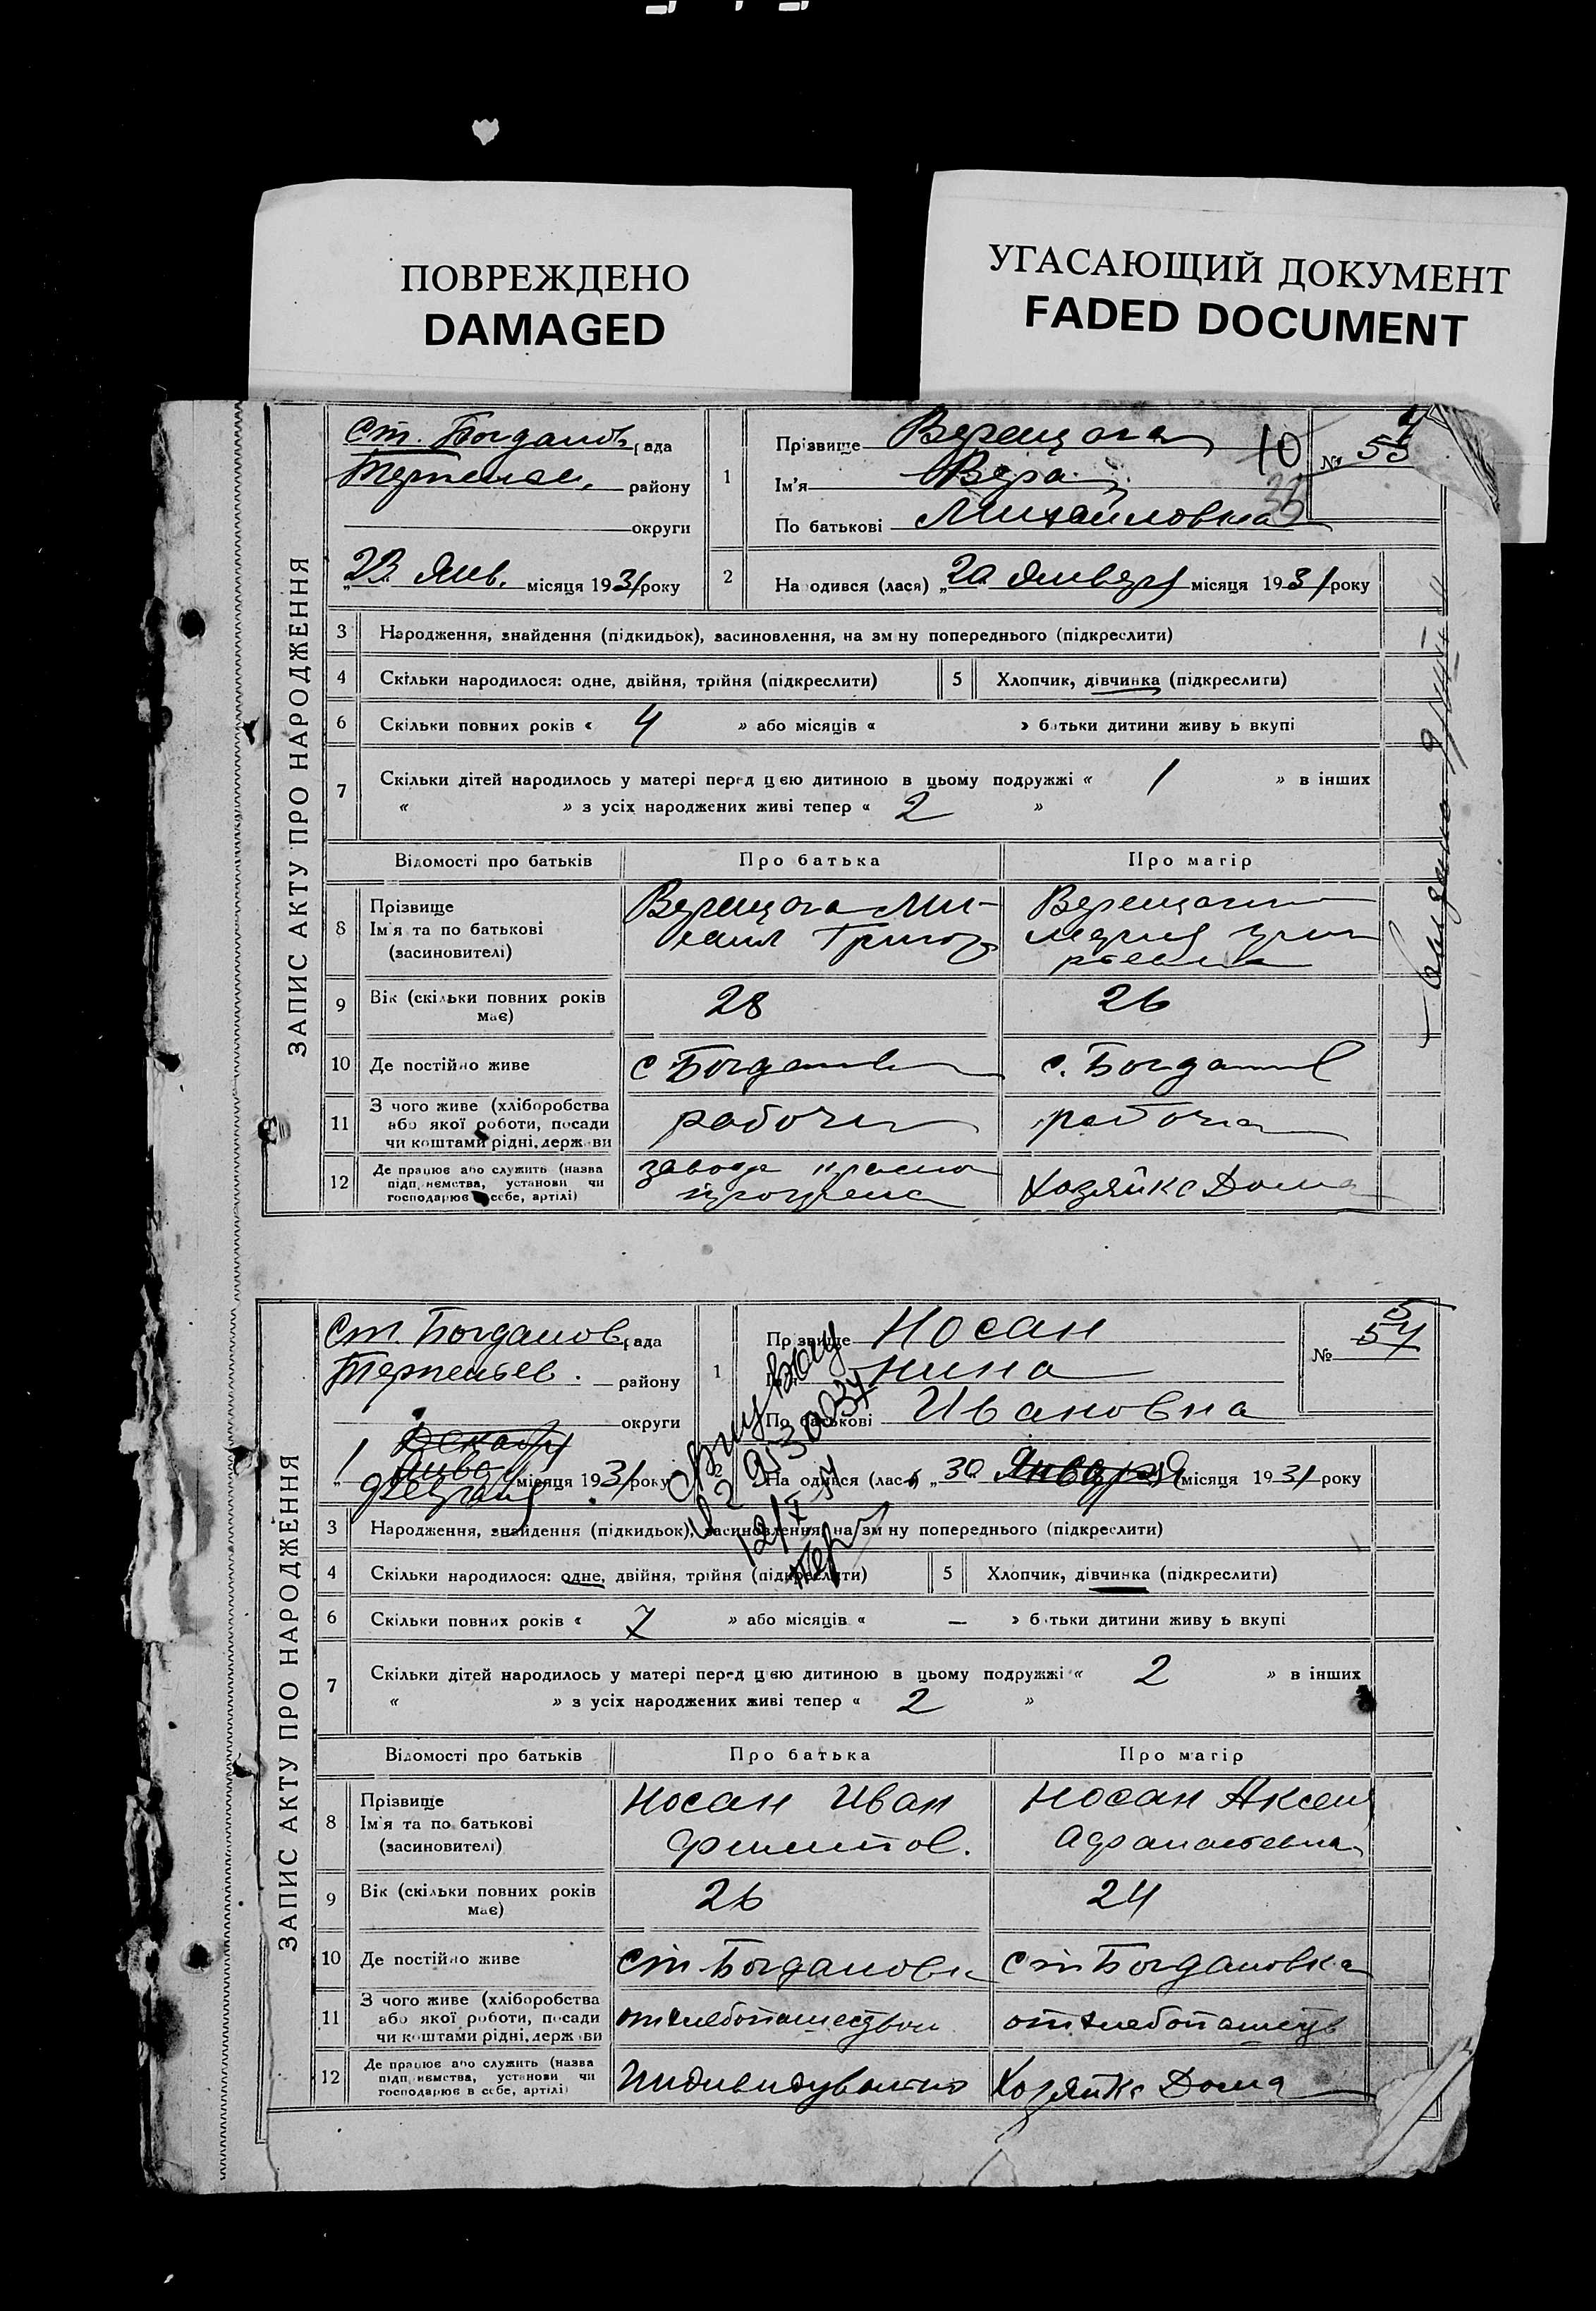 ПОВРЕЖДЕНО
DAMAGED
УГАСАЮЩИЙ ДОКУМЕНТ
FADED DOCUMENT
ЗАПИС АКТУ ПРО НАРОДЖЕННЯ
Ст. Богданов рада
району
округи
„23 Янв. місяця 1931 року
1
Прізвище Верещага
Ім'я Вера
По батькові Михайловна
10
№ 55
2
На одився (лася) „20 Января місяця 1931 року
3 Народження, знайдення (підкидьок), засиновлення, на зм ну попереднього (підкреслити)
4 Скільки народилося: одне, двійня, трійня (підкреслити)
5 Хлопчик, дівчинка (підкреслити)
6 Скільки повних років « 4 » або місяців « » батьки дитини живу ь вкупі
7 Скільки дітей народилось у матері перед цією дитиною в цьому подружжі « 1 » в інших
« » з усіх народжених живі тепер « 2 »
Відомості про батьків Про батька Про матір
8 Прізвище
Ім'я та по батькові
(засновителі)
Верещага Ми-
хаил Григор
Верещага
Мария
9 Вік (скільки повних років
має)
28 26
10 Де постійно живе с Богдановка с. Богдановк
11 З чого живе (хліборобства
або якої роботи, посади
чи коштами рідні, держави
рабочий рабочая
12 Де працює або служить (назва
підприємства, установи чи
господарює в себе, артілі)
завода
прогреса
Хозяйка Дома
ЗАПИС АКТУ ПРО НАРОДЖЕННЯ
Ст. Богданов рада
Терпеньев. району
округи
Декабр
Янва
„1 февраля місяця 1931 року
1
Пр звище Носан
Нина
По батькові Ивановна
№ 54
5
2
На одився (лася) „30 Января місяця 1931 року
3 Народження, знайдення (підкидьок), засиновлення, на зм ну попереднього (підкреслити)
4 Скільки народилося: одне, двійня, трійня (підкреслити)
5 Хлопчик, дівчинка (підкреслити)
6 Скільки повних років « 7 » або місяців « — » батьки дитини живу ь вкупі
7 Скільки дітей народилось у матері перед цією дитиною в цьому подружжі « 2 » в інших
« » з усіх народжених живі тепер « 2 »
Відомості про батьків Про батька Про матір
8 Прізвище
Ім'я та по батькові
(засновителі)
Носан Иван
Филипов.
Носан Аксен
Афанасьевна
9 Вік (скільки повних років
має)
26 24
10 Де постійно живе Ст Богдановк Ст Богдановка
11 З чого живе (хліборобства
або якої роботи, посади
чи коштами рідні, держави
от хлебопашества от хлебопашеств
12 Де працює або служить (назва
підприємства, установи чи
господарює в себе, артілі)
Индивидуально Хозяйка Дома